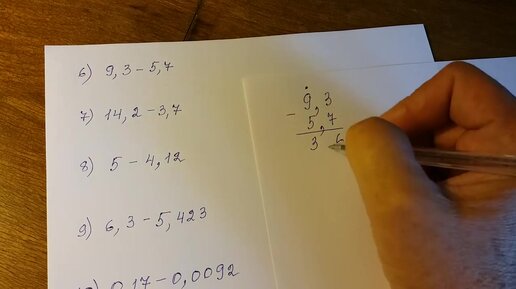 6) 9,3 - 5,7
7) 14,2 - 3,7
8) 5 - 4,12
9) 6,3 - 5,423
10) 0,17 - 0,0092
- 9,3
5,7
3 6